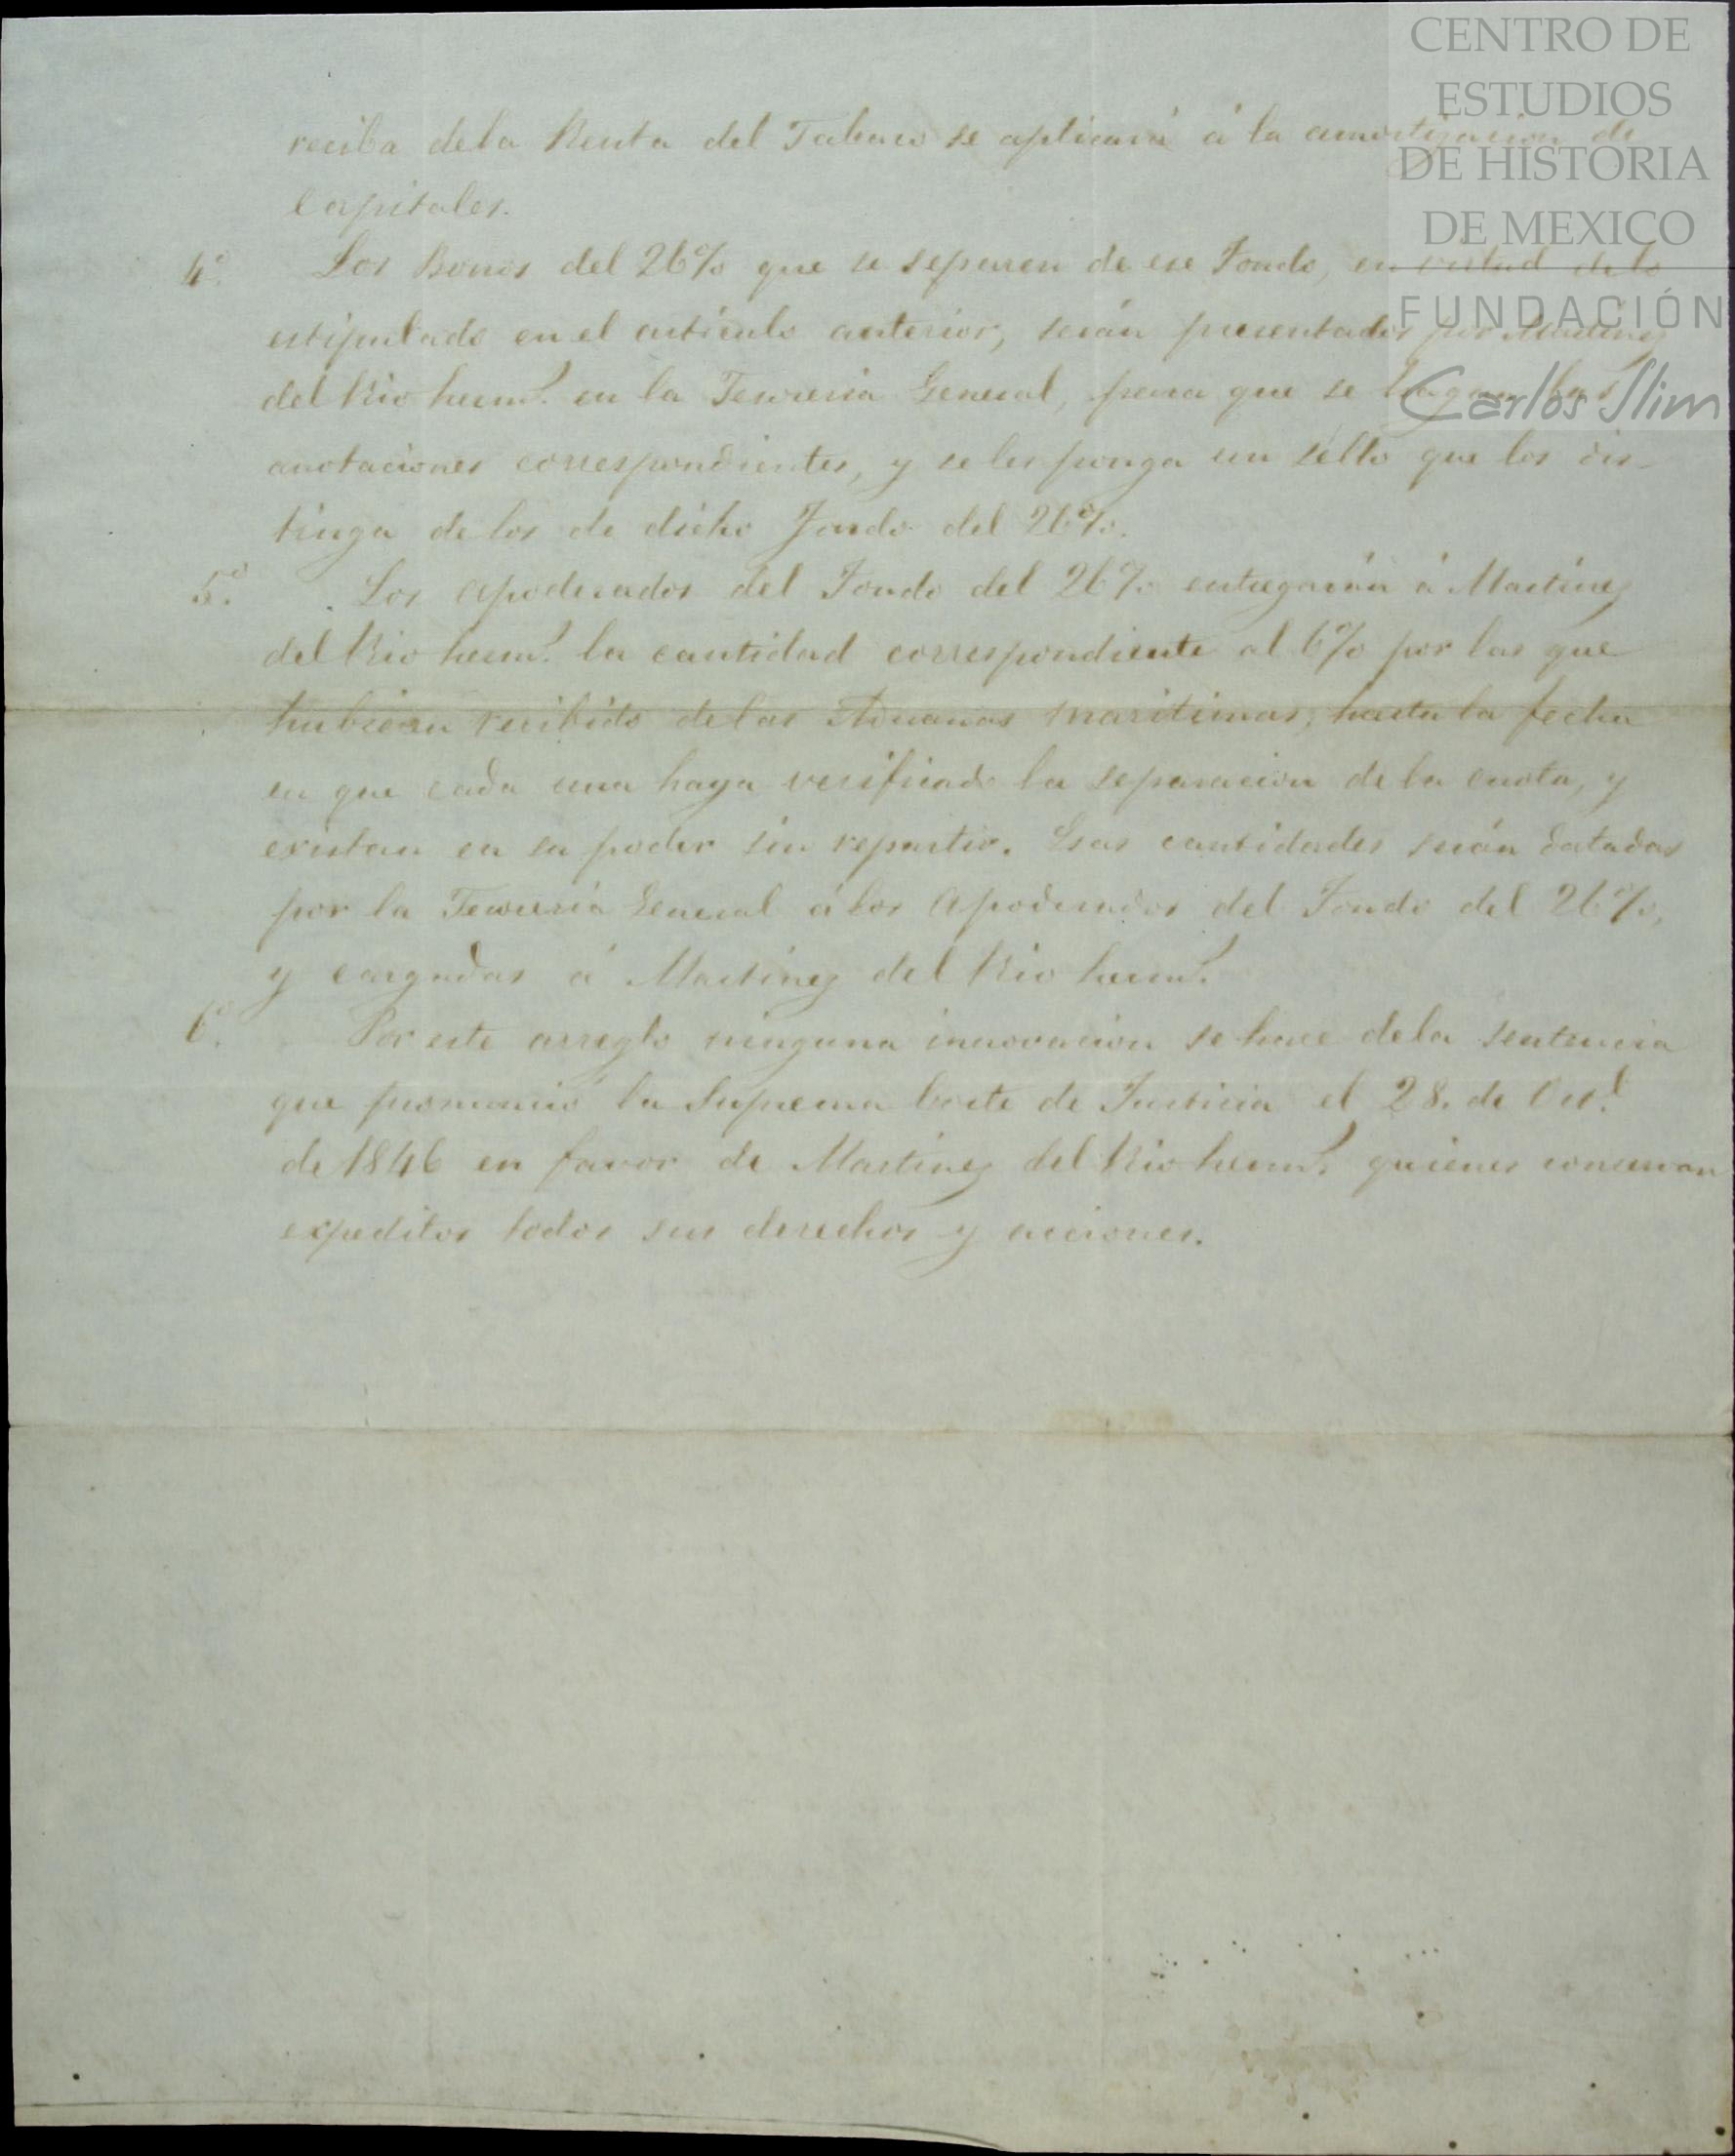 CENTRO DE
ESTUDIOS
DE HISTORIA
DE MEXICO
FUNDACIÓN
Carlos Slim
reciba dela Renta del Tabaco se aplicará á la amortizacion de
Capitales.
4º. Los Bonos del 26% que se separen de ese Fondo, en virtud de lo
estipulado en el artículo anterior, serán presentados por Martinez
del Rio herms. en la Tesoreria General, para que se hagan las
anotaciones correspondientes, y se les ponga un sello que los dis-
tinga de los de dicho Fondo del 26%.
5º. Los Apoderados del Fondo del 26% entregarán á Martinez
del Rio herms. la cantidad correspondiente al 6% por las que
hubieren recibido de las Aduanas maritimas, hasta la fecha
en que cada una haya verificado la separacion de la cuota, y
existan en su poder sin repartir. Esas cantidades serán datadas
por la Tesoreria General á los Apoderados del Fondo del 26%,
y cargadas á Martinez del Rio herms.
6º. Por este arreglo ninguna innovacion se hace dela sentencia
que pronunció la Suprema Corte de Justicia el 28. de
de 1846 en favor de Martinez del Rio herms. quienes conservan
expeditos todos sus derechos y acciones.